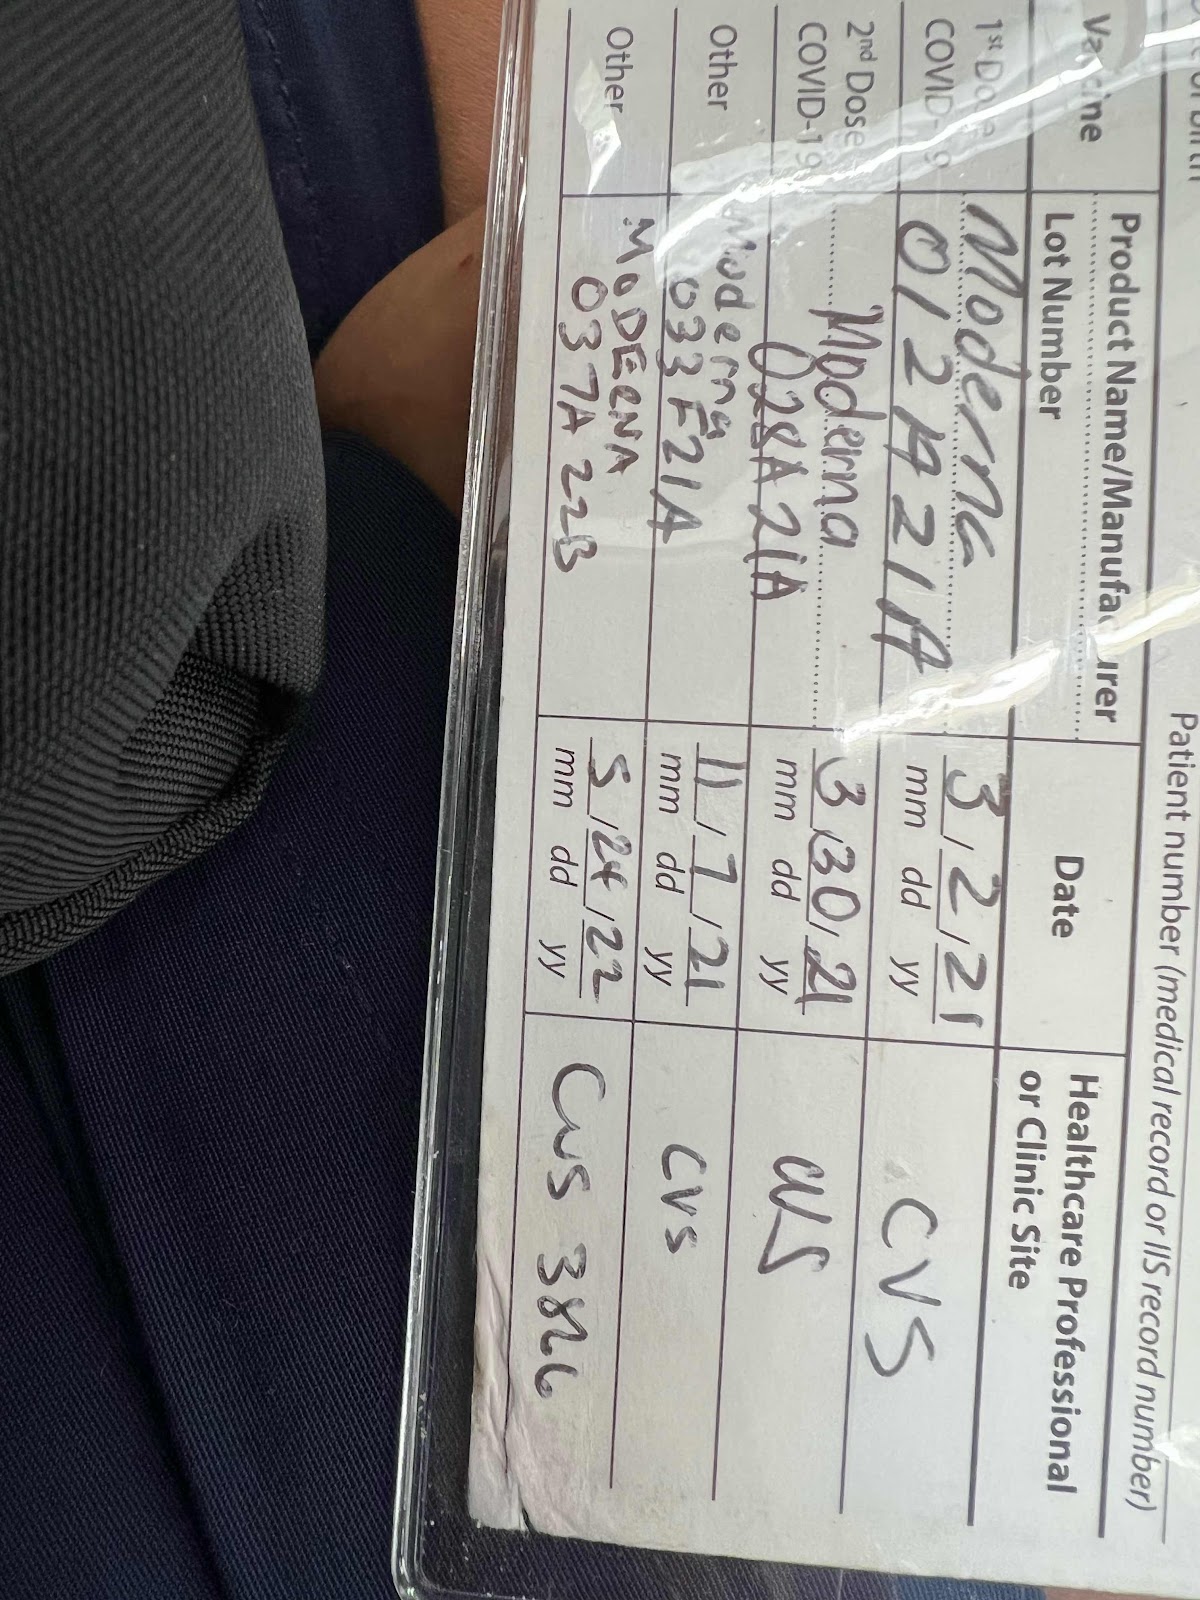 Patient number (medical record or IIS record number)
Vaccine
Product Name/Manufacturer
Lot Number
Date
Healthcare Professional
or Clinic Site
1st Dose
COVID-19
Moderna
012A21A
3/2/21
mm dd yy
CVS
2nd Dose
COVID-19
Moderna
028A21A
3/30/21
mm dd yy
CVS
Other
Moderna
033F21A
11/7/21
mm dd yy
CVS
Other
MODERNA
037A22B
5/24/22
mm dd yy
CVS 3826